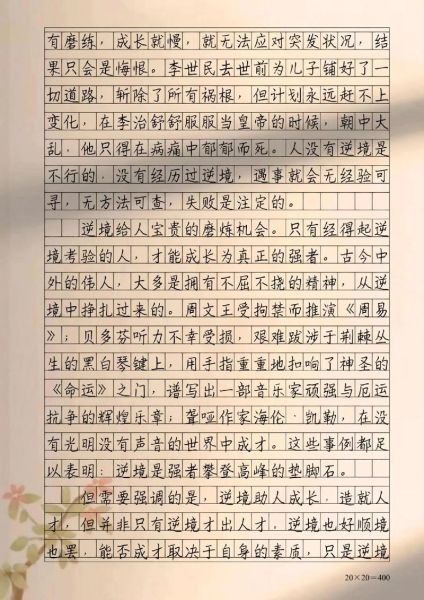 有磨练，成长就慢，就无法应对突发状况，结
果只会是悔恨。李世民去世前为儿子铺好了一
切道路，斩除了所有祸根，但计划永远赶不上
变化，在李治舒舒服服当皇帝的时候，朝中大
乱，他只得在病痛中郁郁而死。人没有逆境是
不行的，没有经历过逆境，遇事就会无经验可
寻，无方法可查，失败是注定的。
逆境给人宝贵的磨炼机会。只有经得起逆
境考验的人，才能成长为真正的强者。古今中
外的伟人，大多是拥有不屈不挠的精神，从逆
境中挣扎过来的。周文王受拘禁而推演《周易
》；贝多芬听力不幸受损，艰难跋涉于荆棘丛
生的黑白琴键上，用手指重重地扣响了神圣的
《命运》之门，谱写出一部音乐家顽强与厄运
抗争的辉煌乐章；聋哑作家海伦·凯勒，在没
有光明没有声音的世界中成才。这些事例都足
以表明：逆境是强者攀登高峰的垫脚石。
但需要强调的是，逆境助人成长，造就人
才，但并非只有逆境才出人才，逆境也好顺境
也罢，能否成才取决于自身的素质，只是逆境
20×20=400